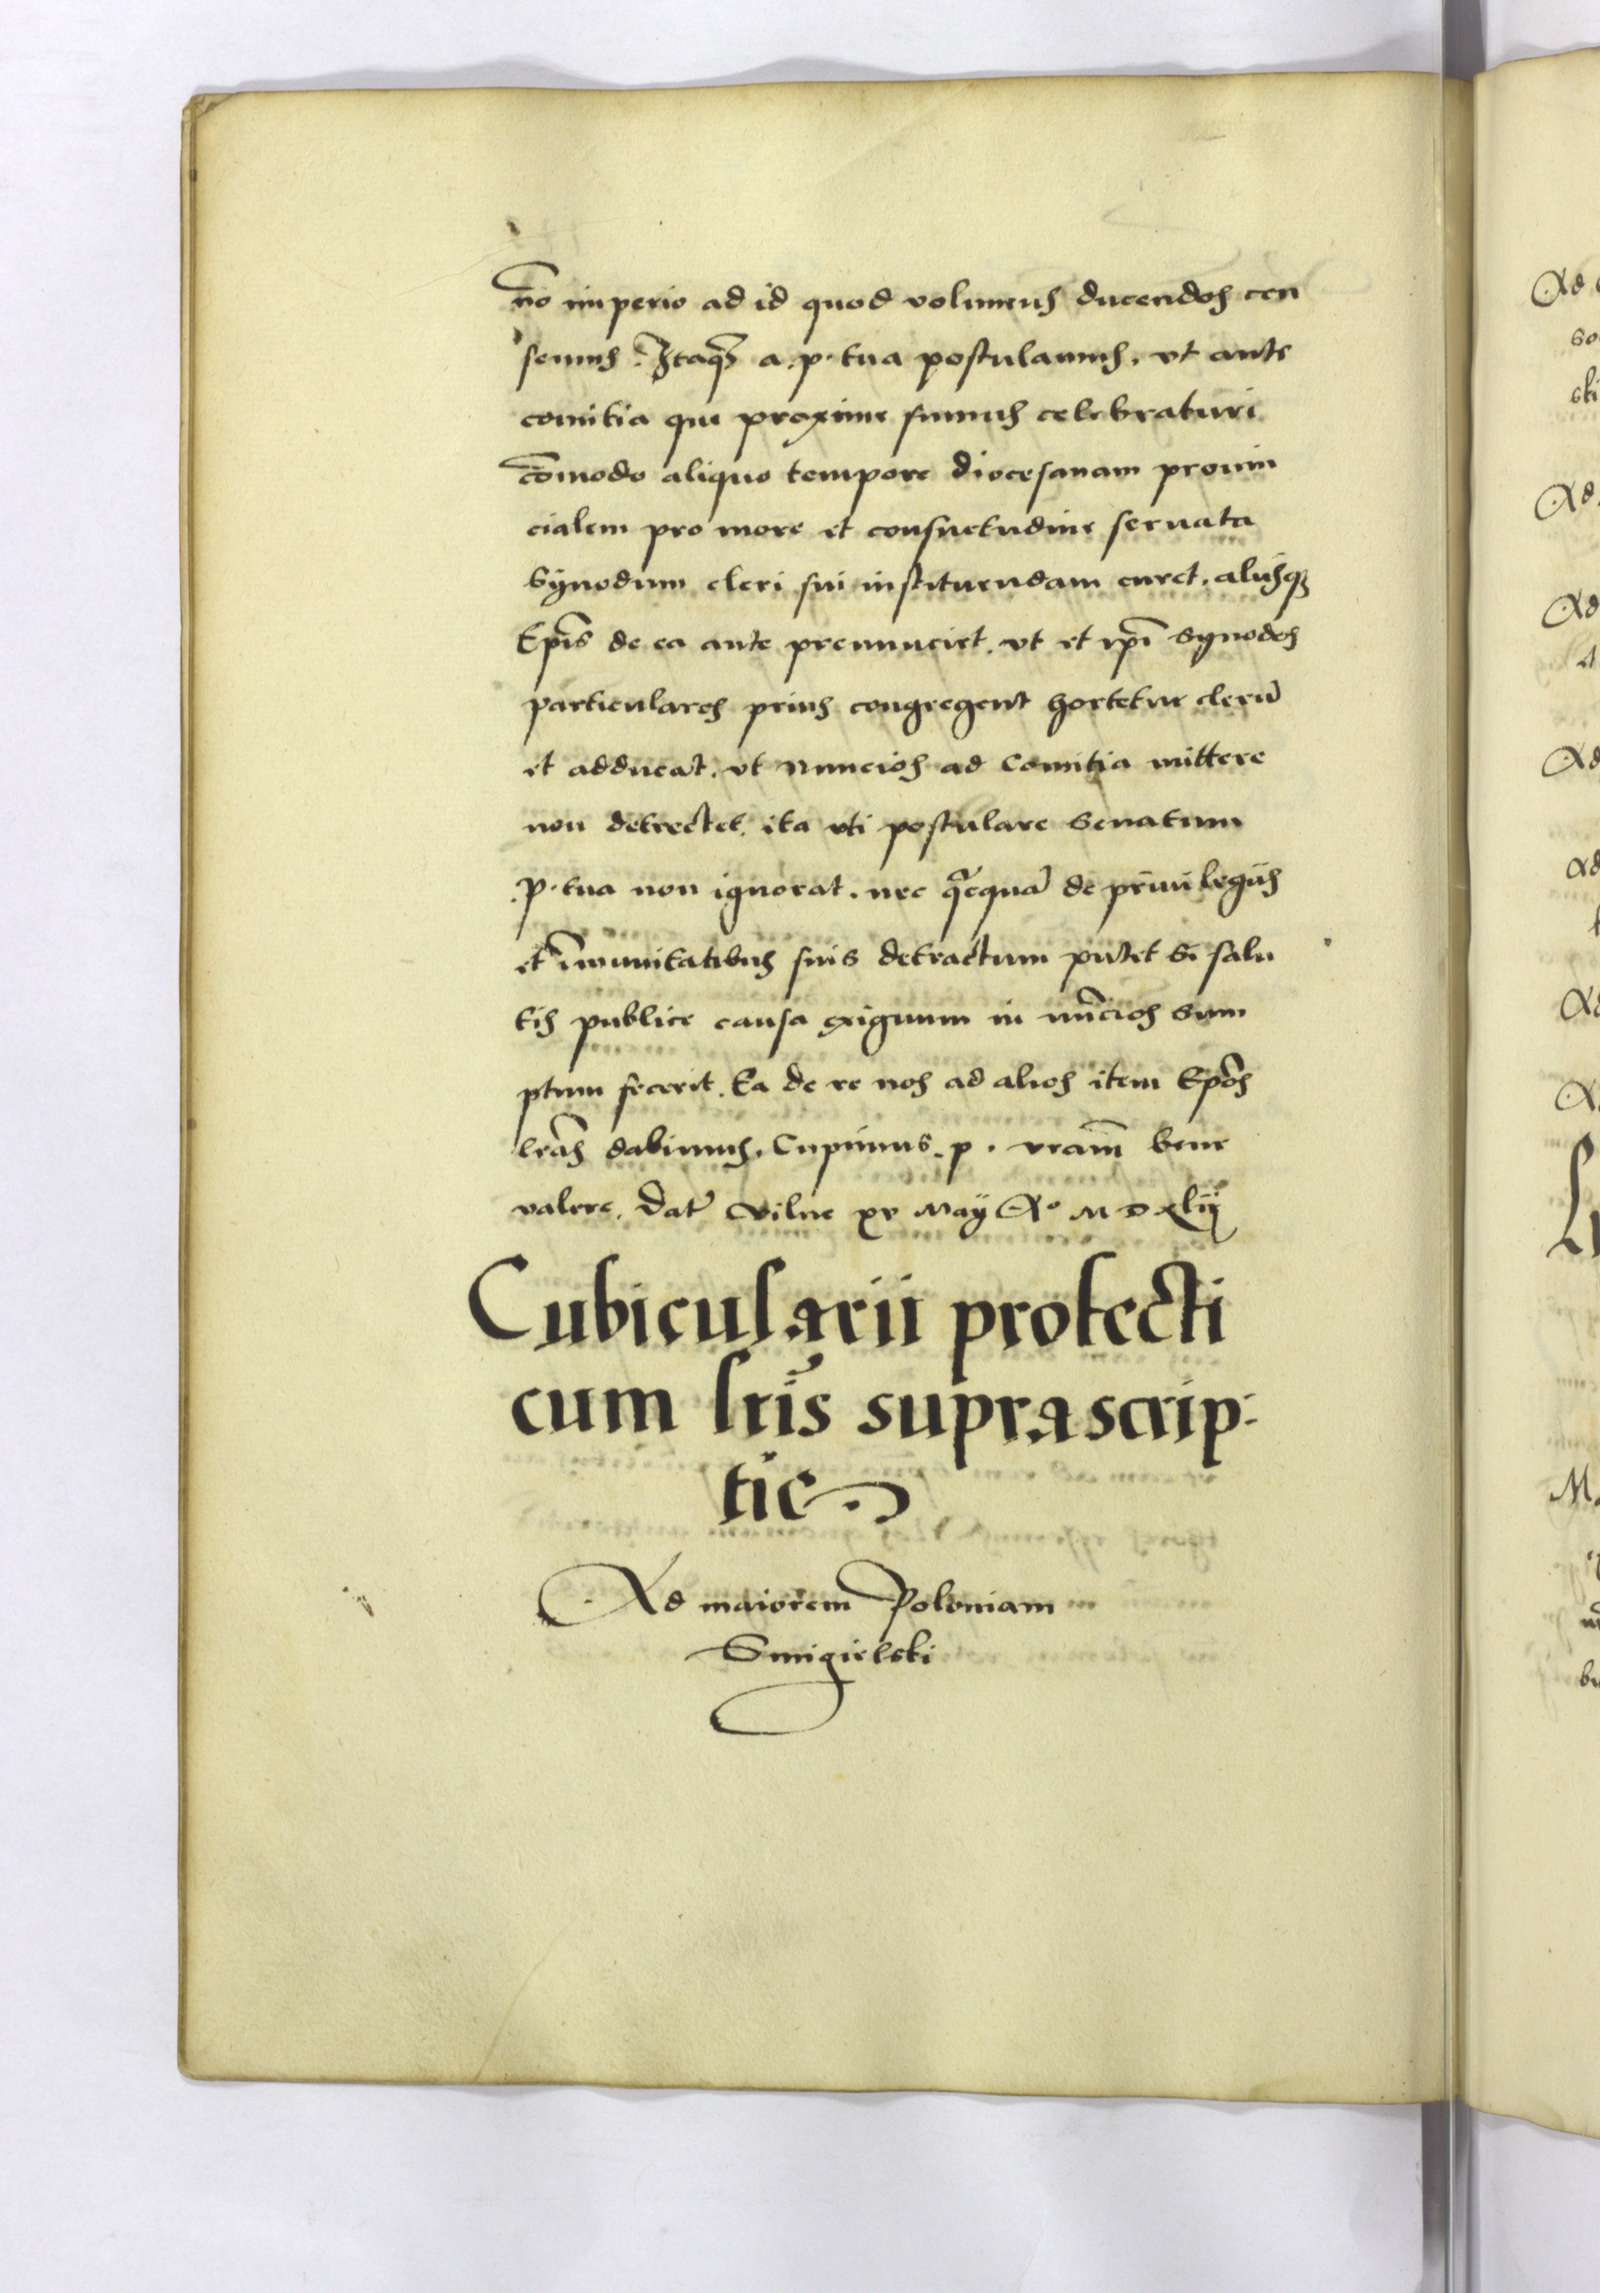 nō imperio ad id quod volumus ducendos cen
semus. Itaq₃ a. p. tua postulamus, vt ante
comitia que proxime sumus celebraturi
cōmodo aliquo tempore diocesanam prouin
cialem pro more et consuetudine seruata
Synodum cleri sui instituendam curet, alijsq₃
Ep̄is de ea ante prenunciet, vt et ip̄i Synodos
particulares prius congregent hortetur clerū
et adducat, vt Nuncios ad Comitia mittere
non detrectet, ita vti postulare Senatum
p. tua non ignorat. nec q̄cquā de priuilegijs
et īmunitatibus suis detractum putet Si salu
tis publice causa exiguum in nūcios Sum
ptum fecerit. Ea de re nos ad alios item Ep̄os
lrās dabimus. Cupimus p. vrām bene
valere. Dat̄ Vilne xv May A° M D xlij
Cubicularii protecti
cum lrīs suprascrip:
tic
Ad maiorem Poloniam
Smigielski
Ad
Ad
Ad
Ad
Ad